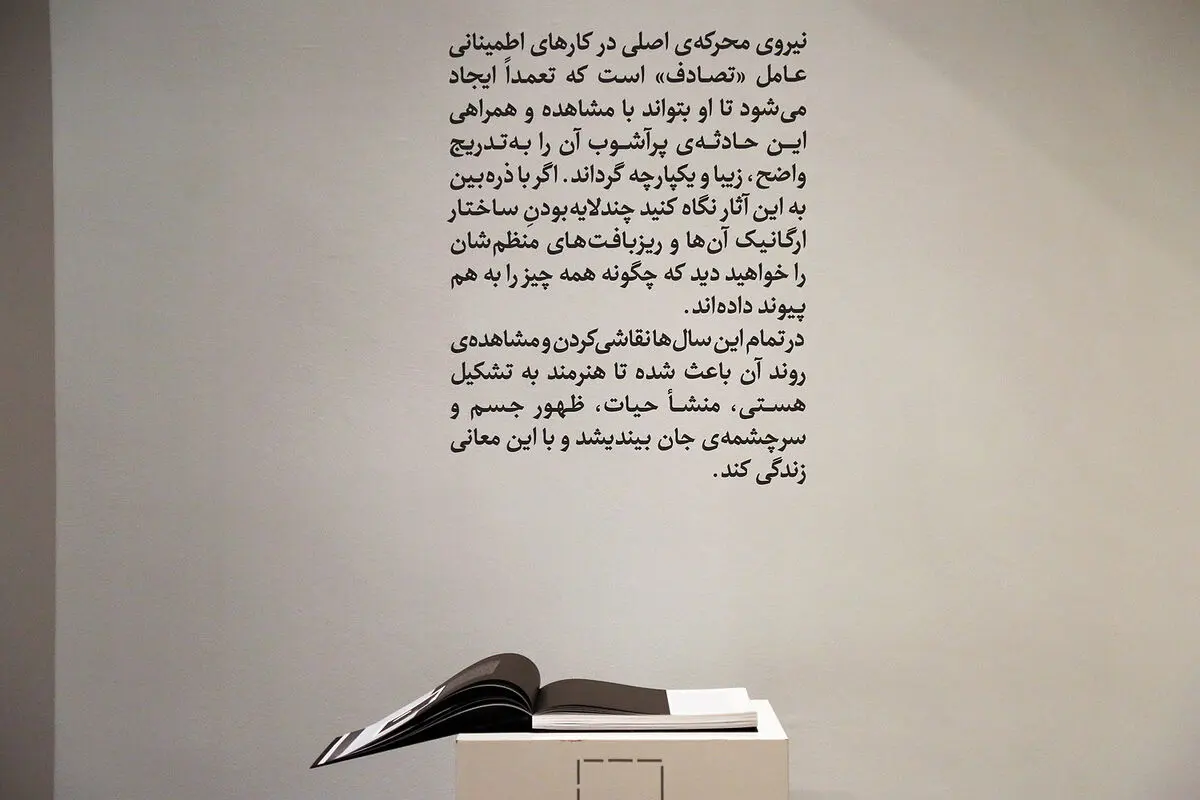 نیروی محرکه‌ی اصلی در کارهای اطمینانی
عامل «تصادف» است که تعمداً ایجاد
می‌شود تا او بتواند با مشاهده و همراهی
این حادثه‌ی پرآشوب آن را به‌تدریج
واضح، زیبا و یکپارچه گرداند. اگر با ذره‌بین
به این آثار نگاه کنید چندلایه‌بودنِ ساختار
ارگانیک آن‌ها و ریزبافت‌های منظم‌شان
را خواهید دید که چگونه همه چیز را به هم
پیوند داده‌اند.
در تمام این سال‌ها نقاشی‌کردن و مشاهده‌ی
روند آن باعث شده تا هنرمند به تشکیل
هستی، منشأ حیات، ظهور جسم و
سرچشمه‌ی جان بیندیشد و با این معانی
زندگی کند.